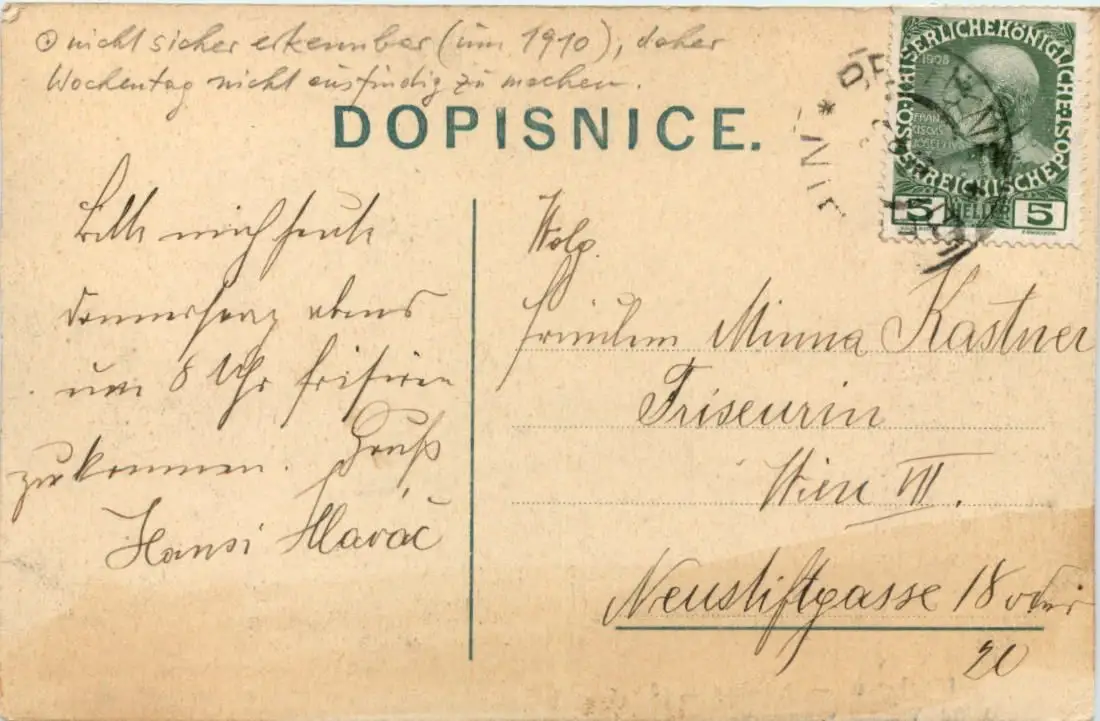 ⊙ nicht sicher erkennbar (um 1910), daher
Wochentag nicht ausfindig zu machen.
DOPISNICE.
Bitte mich heute
Donnerstag abend
um 8 Uhr frisiren
zu kommen. Gruß
Hansi Hlaváč
Wolg.
Fräulein Minna Kastner
Friseurin
Wien VII.
Neustiftgasse 18 oder
20
KAISERLICHEKÖNIGLICHE
ÖSTERREICHISCHE POST
1908
FRAN
CISCUS
JOSEF I
5 HELLER 5